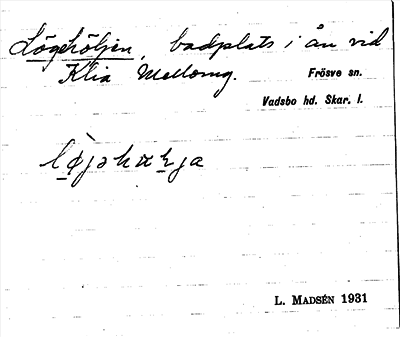 Lögehöljen, badplats i ån vid
Klia Mellomg.
Frösve sn.
Vadsbo hd. Skar. l.
L. MADSÉN 1931